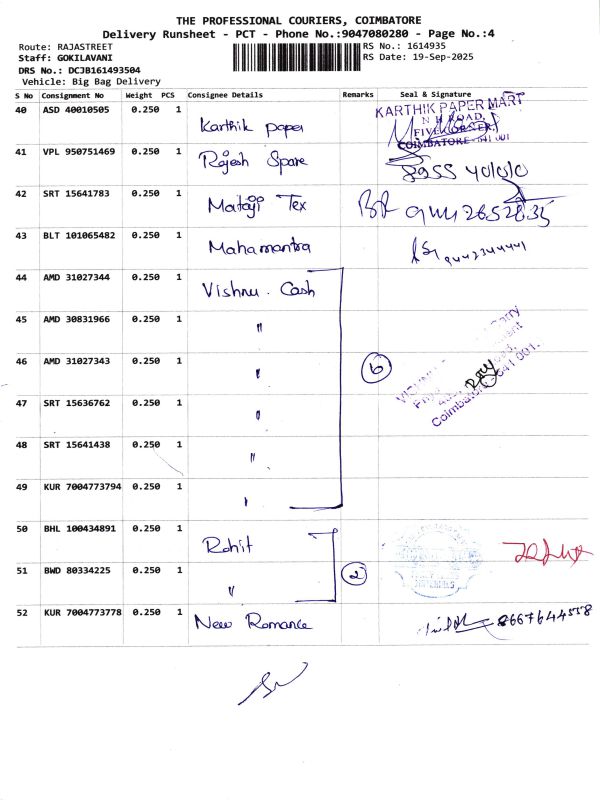 THE PROFESSIONAL COURIERS, COIMBATORE
Delivery Runsheet - PCT - Phone No.:9047080280 - Page No.:4
Route: RAJASTREET
RS No.: 1614935
Staff: GOKILAVANI
RS Date: 19-Sep-2025
DRS No.: DCJB161493504
Vehicle: Big Bag Delivery
S No Consignment No Weight PCS Consignee Details Remarks Seal & Signature
40 ASD 40010505 0.250 1 Karthik paper
KARTHIK PAPER MART
N H ROAD,
FIVE CORNER,
COIMBATORE - 641 001
41 VPL 950751469 0.250 1 Rajesh Spare
42 SRT 15641783 0.250 1 Mataji Tex
43 BLT 101065482 0.250 1 Mahamantra
44 AMD 31027344 0.250 1 Vishnu. Cash
45 AMD 30831966 0.250 1 "
46 AMD 31027343 0.250 1 " 6
Coimbatore 641 001.
47 SRT 15636762 0.250 1 "
48 SRT 15641438 0.250 1 "
49 KUR 7004773794 0.250 1 "
50 BHL 100434891 0.250 1 Rohit
51 BWD 80334225 0.250 1 " 2
52 KUR 7004773778 0.250 1 New Romance 8667644558